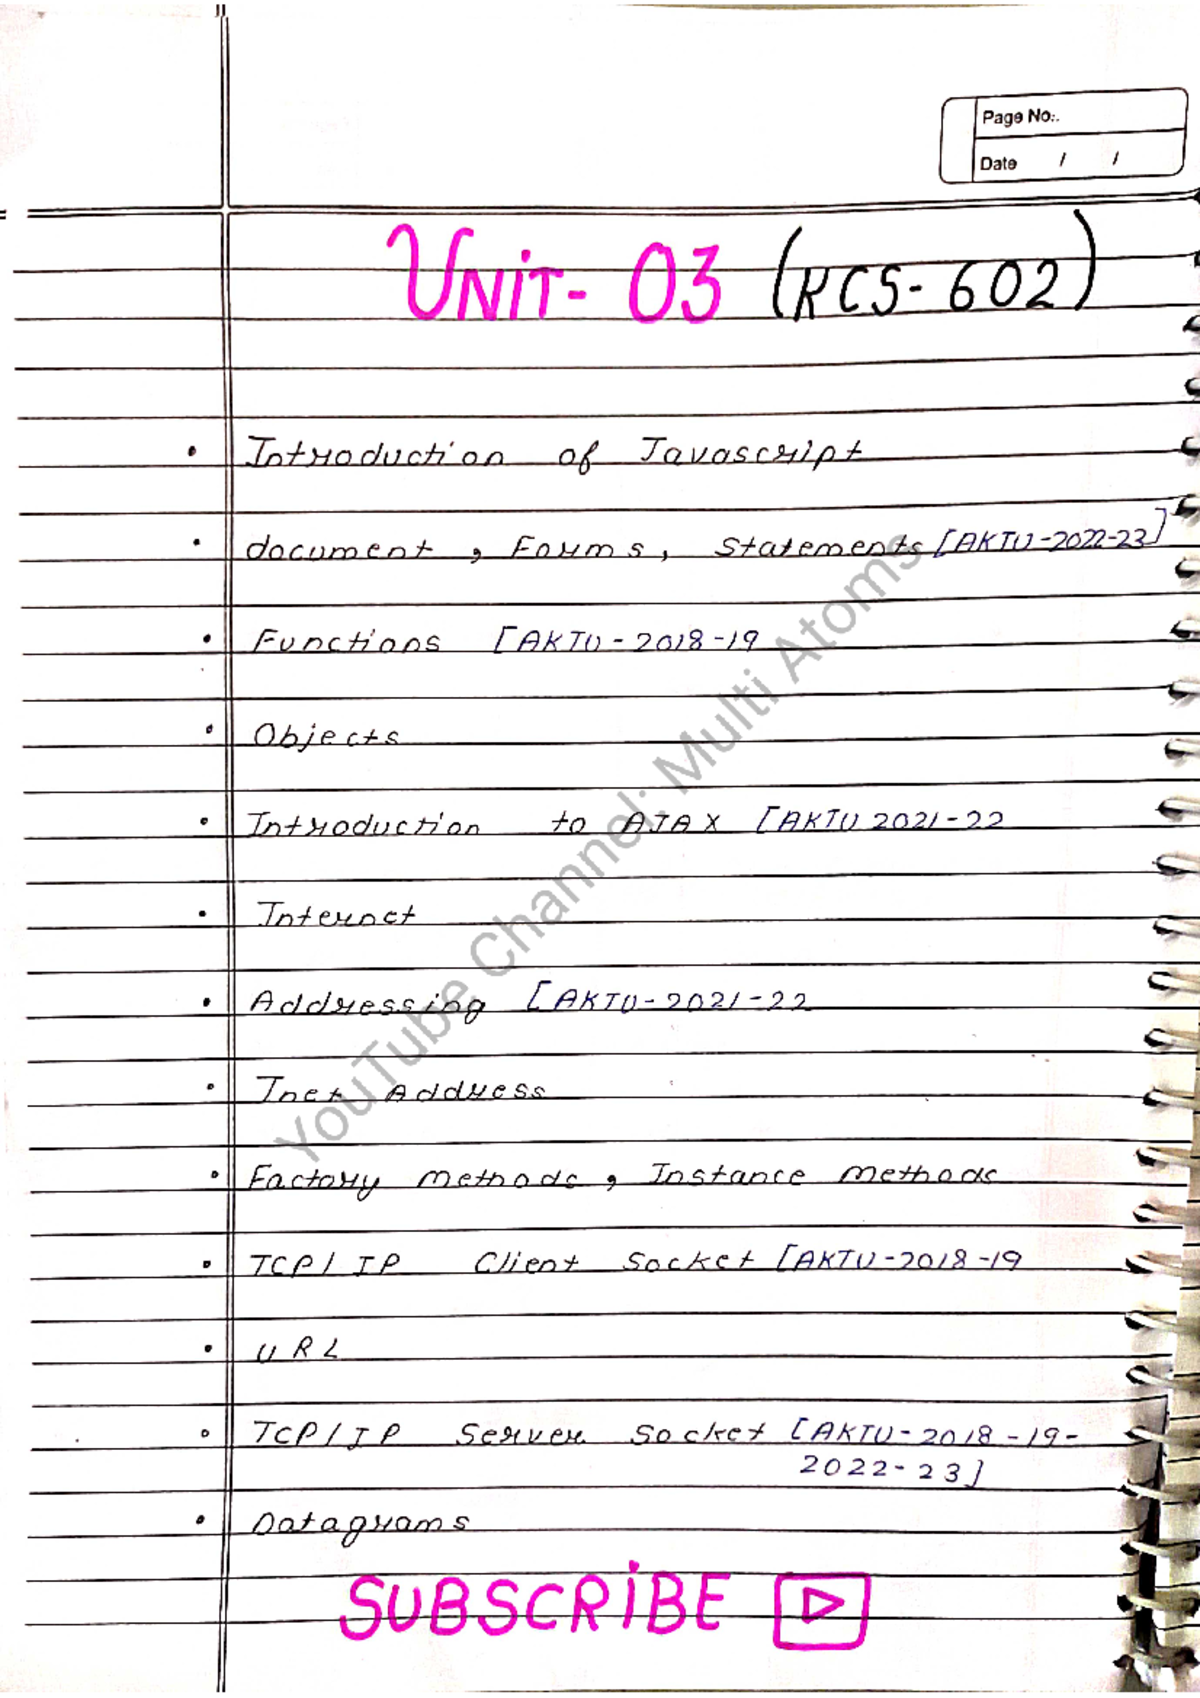 Page No:.
Date / /
UNIT- 03 (KCS-602)
• Introduction of Javascript
• document, Forms, Statements [AKTU-2022-23]
• Functions [AKTU-2018-19
• Objects
• Introduction to AJAX [AKTU 2021-22
• Internet
• Addressing [AKTU-2021-22
• Inet Address
• Factory methods, Instance methods
• TCP/IP Client Socket [AKTU-2018-19
• URL
• TCP/IP Server Socket [AKTU-2018-19-
2022-23]
• Datagrams
SUBSCRIBE
YouTube Channel: Multi Atoms